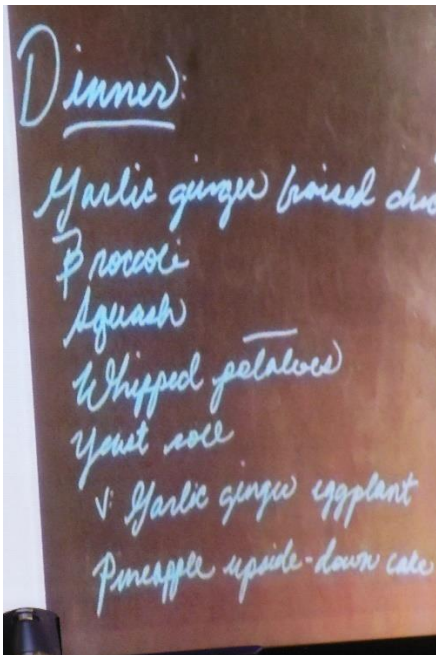 Dinner:
Garlic ginger braised
Broccoli
Squash
Whipped potatoes
Yeast roll
V: Garlic ginger eggplant
Pineapple upside-down cake